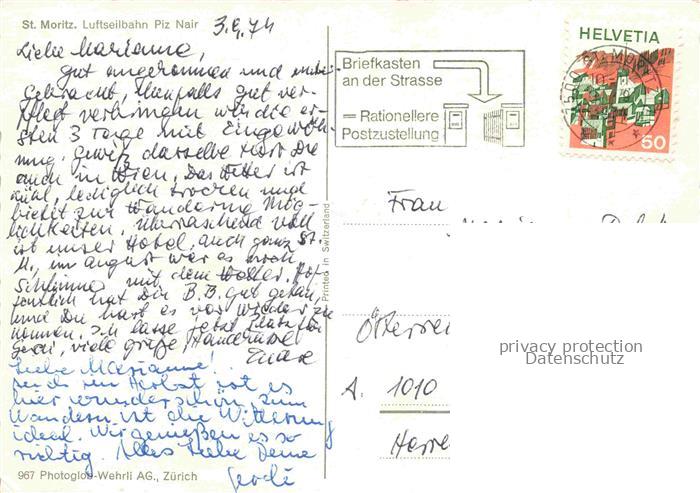 St. Moritz. Luftseilbahn Piz Nair
3.9.74
Liebe Marianne,
gut angekommen und
gebracht, ebenfalls gut ver-
pflegt verbringen wir die er-
sten 3 Tage mit Eingewöh-
nung. Gewiß dasselbe tust Du
auch in Wien. Das Wetter ist
kühl, lediglich trocken und
bietet zur Wanderung Mög-
lichkeiten. Überraschend voll
ist unser Hotel, auch ganz St.
M., im August war es noch
schlimmer mit dem Wetter. Hof-
fentlich hat Dir B.B. gut getan,
und Du hast es vor wieder zu
kommen. Ich lasse jetzt Platz für
Gerdi, viele große Handküsse
Liebe Marianne!
Auch im Herbst ist es
hier wunderschön, zum
Wandern ist die Witterung
ideal. Wir genießen es so
richtig. Alles Liebe Deine
Gerdi
967 Photoglob-Wehrli AG., Zürich
Printed in Switzerland
Briefkasten
an der Strasse
= Rationellere
Postzustellung
HELVETIA
50
Frau
Österrei
A. 1010
Herre
privacy protection
Datenschutz